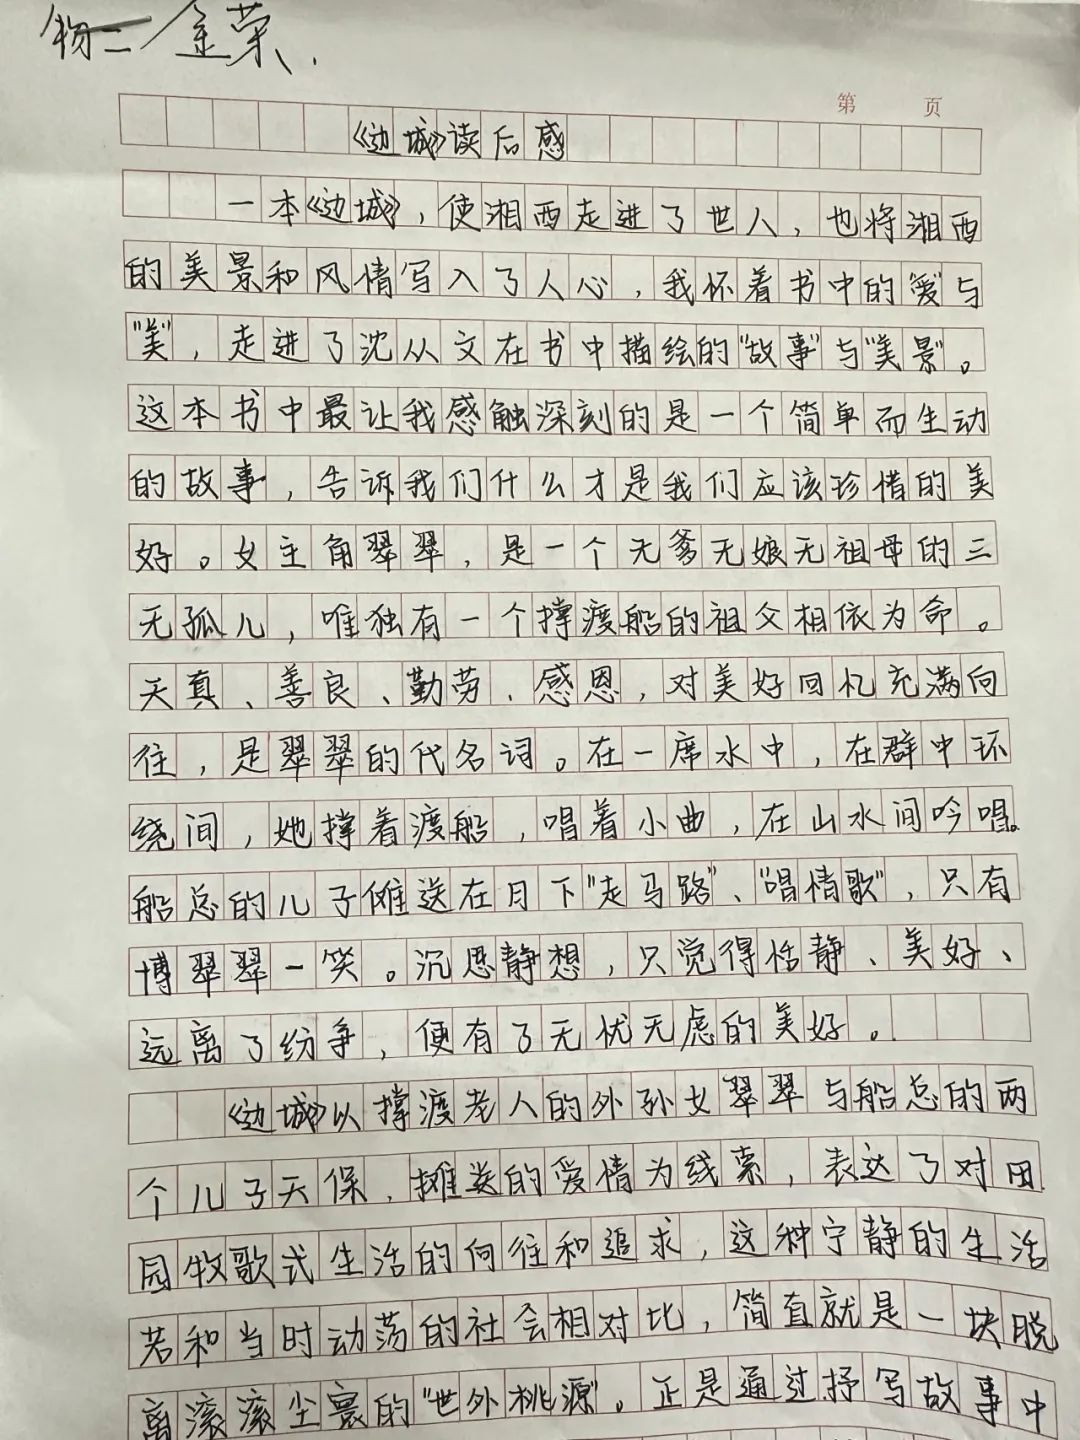 物二 金荣.
第 页
《边城》读后感
一本《边城》,使湘西走进了世人,也将湘西
的美景和风情写入了人心,我怀着书中的"爱"与
"美",走进了沈从文在书中描绘的"故事"与"美景"。
这本书中最让我感触深刻的是一个简单而生动
的故事,告诉我们什么才是我们应该珍惜的美
好。女主角翠翠,是一个无爹无娘无祖母的三
无孤儿,唯独有一个撑渡船的祖父相依为命。
天真、善良、勤劳、感恩,对美好回忆充满向
往,是翠翠的代名词。在一席水中,在群中环
绕间,她撑着渡船,唱着小曲,在山水间吟唱。
船总的儿子傩送在月下"走马路"、"唱情歌",只有
博翠翠一笑。沉思静想,只觉得恬静、美好、
远离了纷争,便有了无忧无虑的美好。
《边城》以撑渡老人的外孙女翠翠与船总的两
个儿子天保、摊送的爱情为线索,表达了对田
园牧歌式生活的向往和追求,这种宁静的生活
若和当时动荡的社会相对比,简直就是一块脱
离滚滚尘寰的"世外桃源"。正是通过抒写故事中